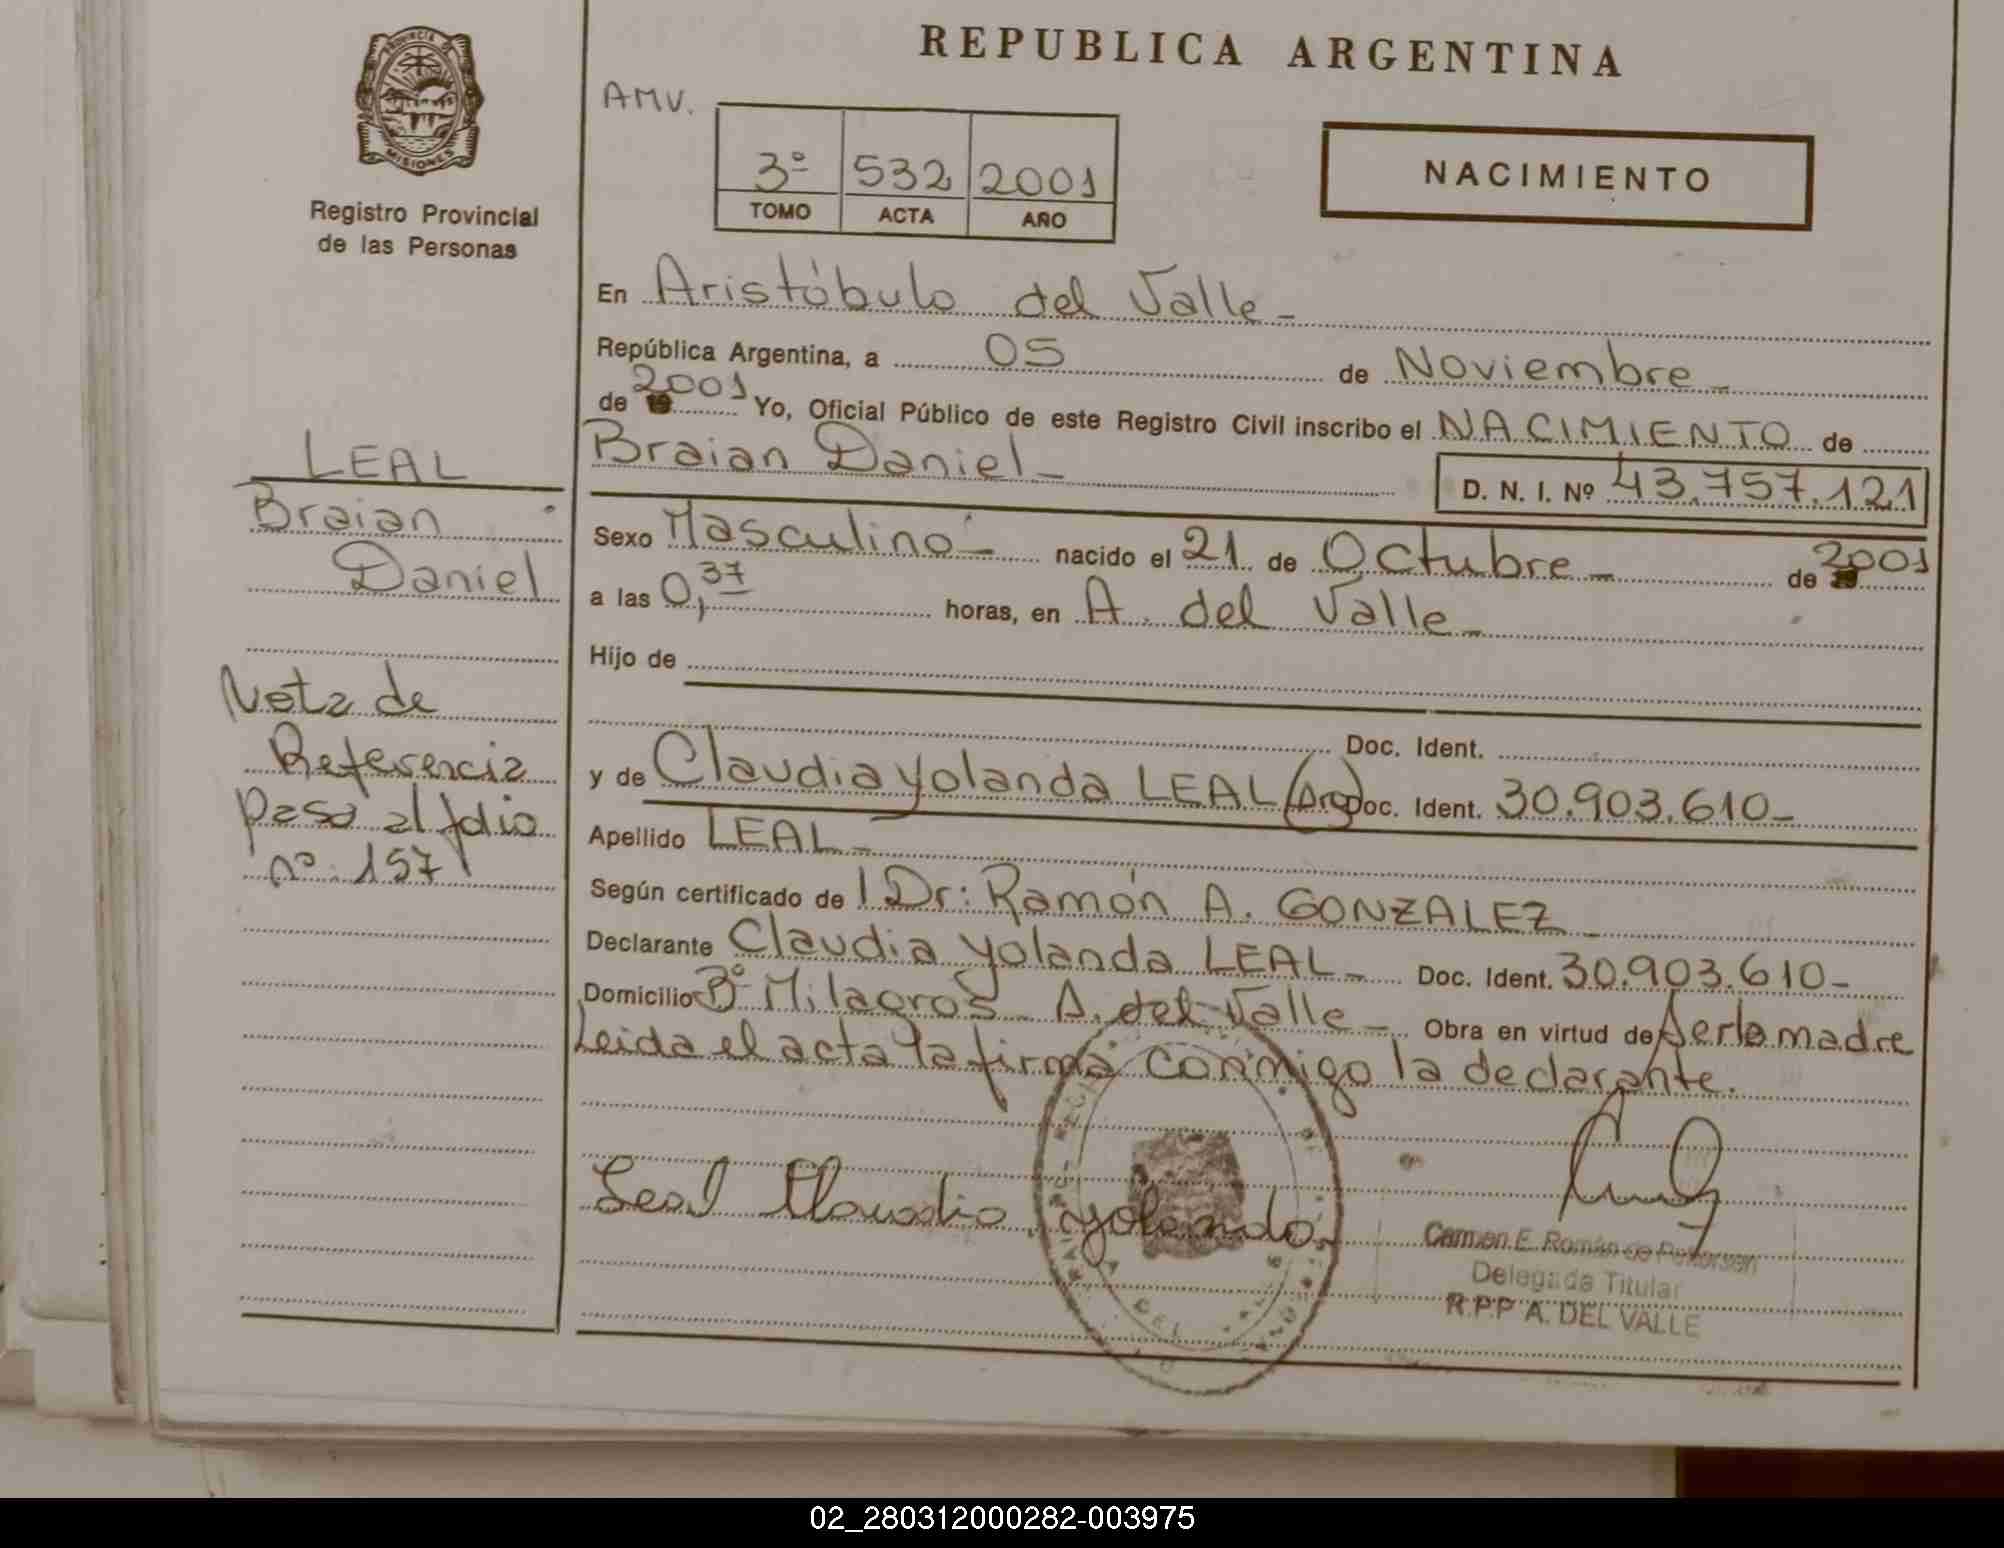 REPUBLICA ARGENTINA
PROVINCIA DE
MISIONES
Registro Provincial
de las Personas
AMV.
3º 532 2001
TOMO ACTA AÑO
NACIMIENTO
En Aristóbulo del Valle -
República Argentina, a 05 de Noviembre -
de 2001 Yo, Oficial Público de este Registro Civil inscribo el NACIMIENTO de
Braian Daniel - D. N. I. Nº 43.757.121
Sexo Masculino - nacido el 21 de Octubre - de 2001
a las 0,37 horas, en A. del Valle -
Hijo de
Doc. Ident.
y de Claudia Yolanda LEAL (Arg) Doc. Ident. 30.903.610 -
Apellido LEAL -
Según certificado de l Dr: Ramón A. GONZALEZ -
Declarante Claudia Yolanda LEAL - Doc. Ident. 30.903.610 -
Domicilio Bº Milagros - A. del Valle - Obra en virtud de Ser la madre
Leida el acta la firma conmigo la declarante.
LEAL
Braian
Daniel
Nota de
Referencia
pasa al folio
nº: 157
Leal Claudia Yolanda
Carmen E. Román de Petterson
Delegada Titular
R.P.P A. DEL VALLE
02_280312000282-003975